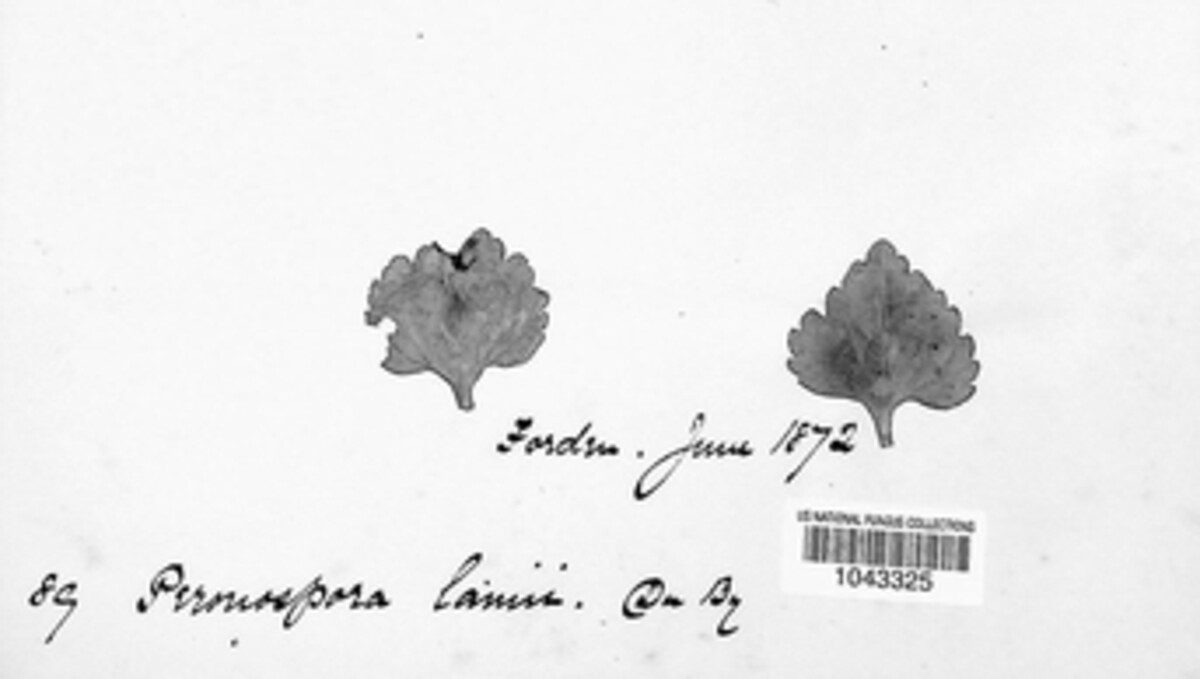 Forden. June 1872
US NATIONAL FUNGUS COLLECTIONS
1043325
89 Peronospora lamii. De By